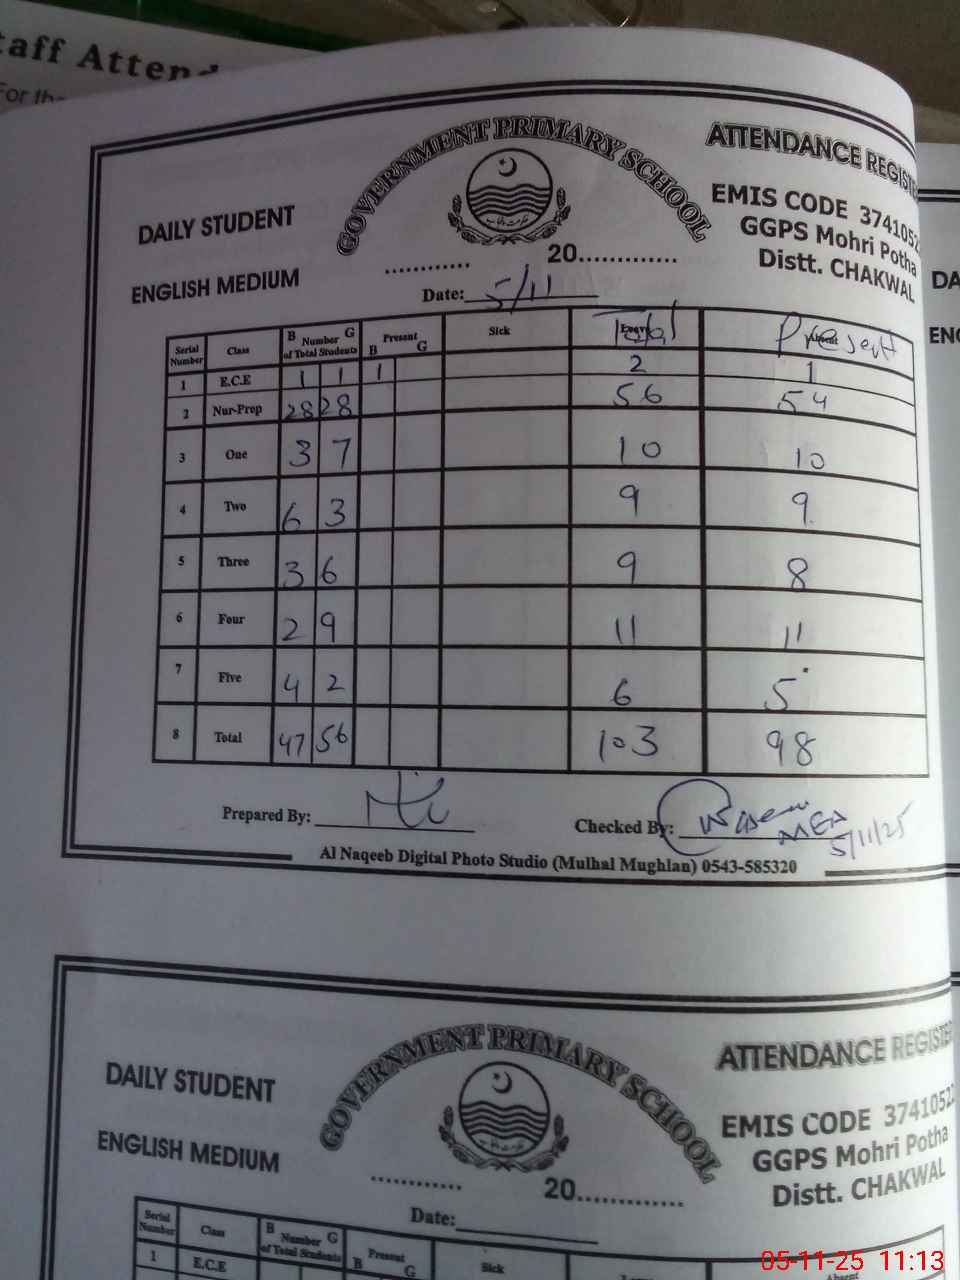 taff Attend
For the
GOVERNMENT PRIMARY SCHOOL
ATTENDANCE REGISTE
DAILY STUDENT
EMIS CODE 3741052
GGPS Mohri Potha
Distt. CHAKWAL
ENGLISH MEDIUM
............ 20.............
Date: 5/11
Serial Number Class B Number G of Total Students Present B G Sick Total Present
1 E.C.E 1 1 1 2 1
2 Nur-Prep 28 28 56 54
3 One 3 7 10 10
4 Two 6 3 9 9
5 Three 3 6 9 8
6 Four 2 9 11 11
7 Five 4 2 6 5
8 Total 47 56 103 98
Prepared By:
Checked By: MEA
5/11/25
Al Naqeeb Digital Photo Studio (Mulhal Mughlan) 0543-585320
DA
ENG
GOVERNMENT PRIMARY SCHOOL
ATTENDANCE REGISTE
DAILY STUDENT
EMIS CODE 3741052
GGPS Mohri Potha
Distt. CHAKWAL
ENGLISH MEDIUM
............ 20.............
Date:
Serial Number Class B Number G of Total Students Present B G Sick Absent
1 E.C.E
05-11-25 11:13